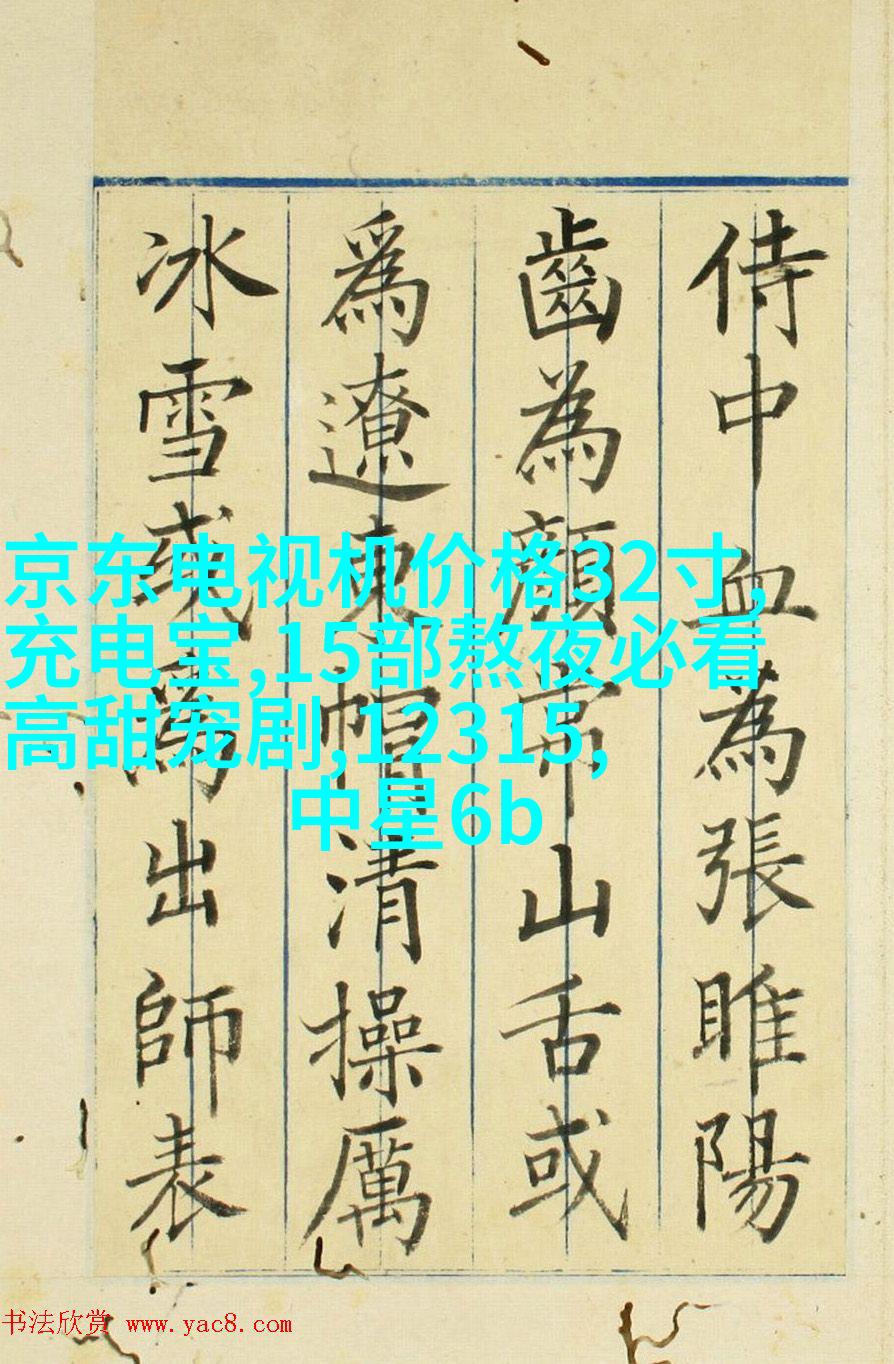 侍中血為張睢陽
齒為顔常山舌或
爲遼東帽清操厲
冰雪或爲出師表
京东电视机价格32寸,
充电宝,15部熬夜必看
高甜宠剧,12315,
中星6b
书法欣赏 www.yac8.com